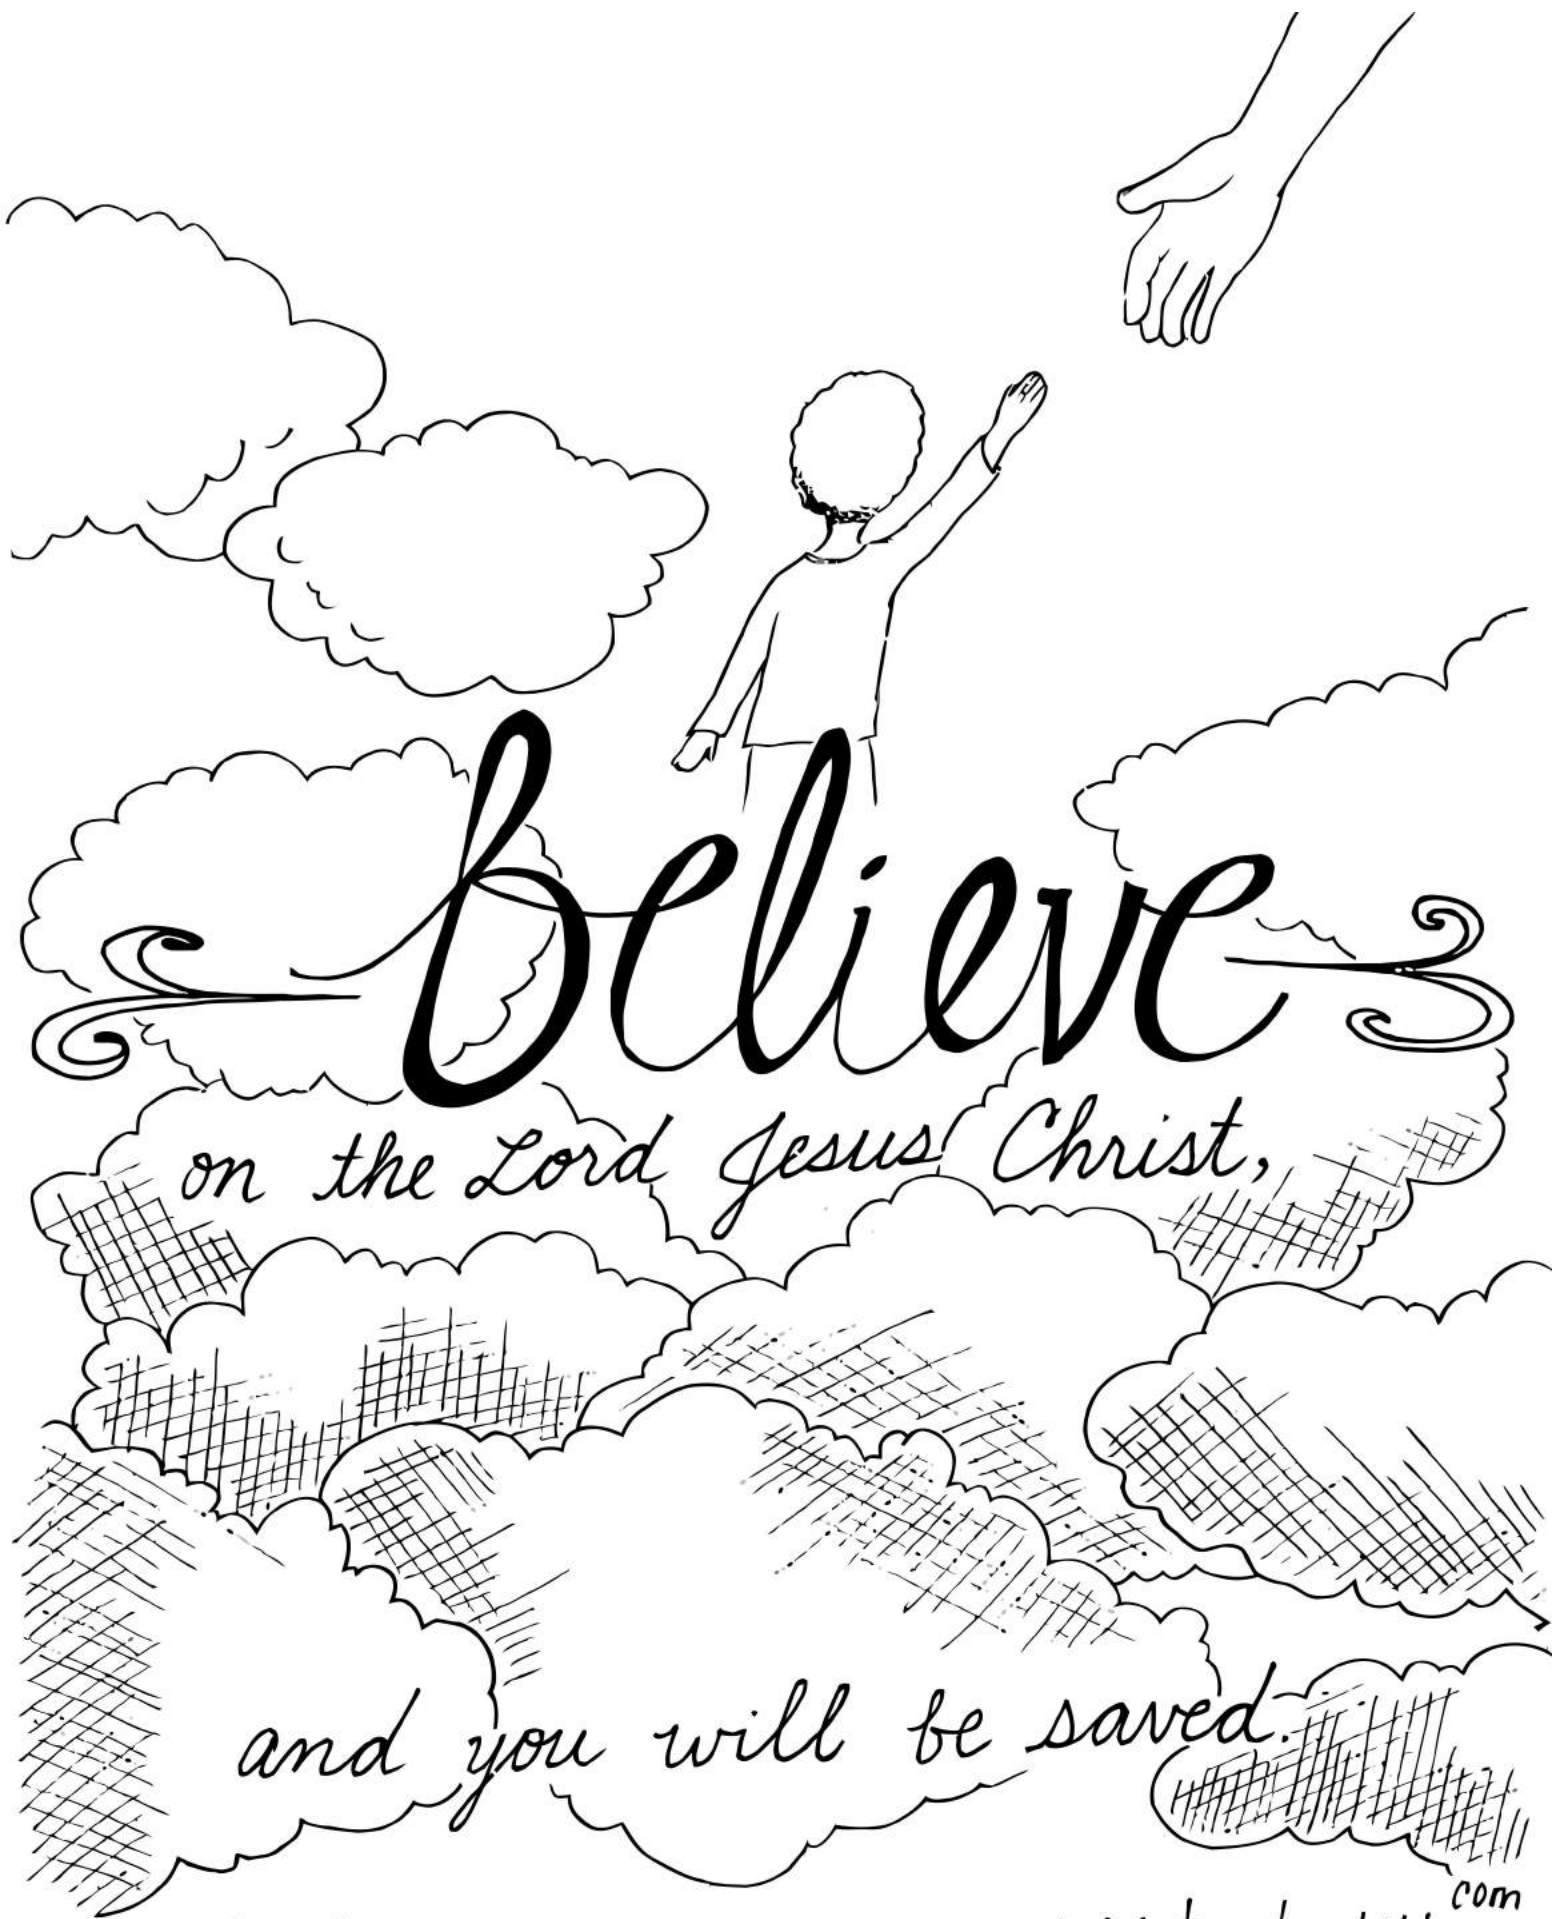 believe
on the Lord Jesus Christ,
and you will be saved.
com